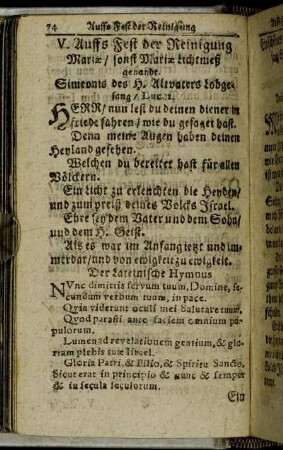 74 Auffs Fest der Reinigung
V. Auffs Fest der Reinigung
Mariæ / sonst Mariæ Lichtmeß
genandt.
Simeonis des H. Altvaters Lobge-
sang / Luc. 2.
HERR / nun lest du deinen diener in
friede fahren / wie du gesaget hast.
Denn meine Augen haben deinen
Heyland gesehen.
Welchen du bereitet hast für allen
Völckern.
Ein Licht zu erleuchten die Heyden /
und zum preiß deines Volcks Israel.
Ehre sey dem Vater und dem Sohn /
und dem H. Geist.
Als es war im Anfang jetzt und im-
merdar / und von ewigkeit zu ewigkeit.
Der Lateinische Hymnus
NVnc dimittis servum tuum, Domine, se-
cundum verbum tuum, in pace.
Qvia viderunt oculi mei salutare tuum.
Qvod parasti ante faciem omnium po-
pulorum.
Lumen ad revelationem gentium, & glo-
riam plebis tuæ Israel.
Gloria Patri, & Filio, & Spiritu Sancto,
Sicut erat in principio & nunc & semper
& in secula seculorum.
Ein